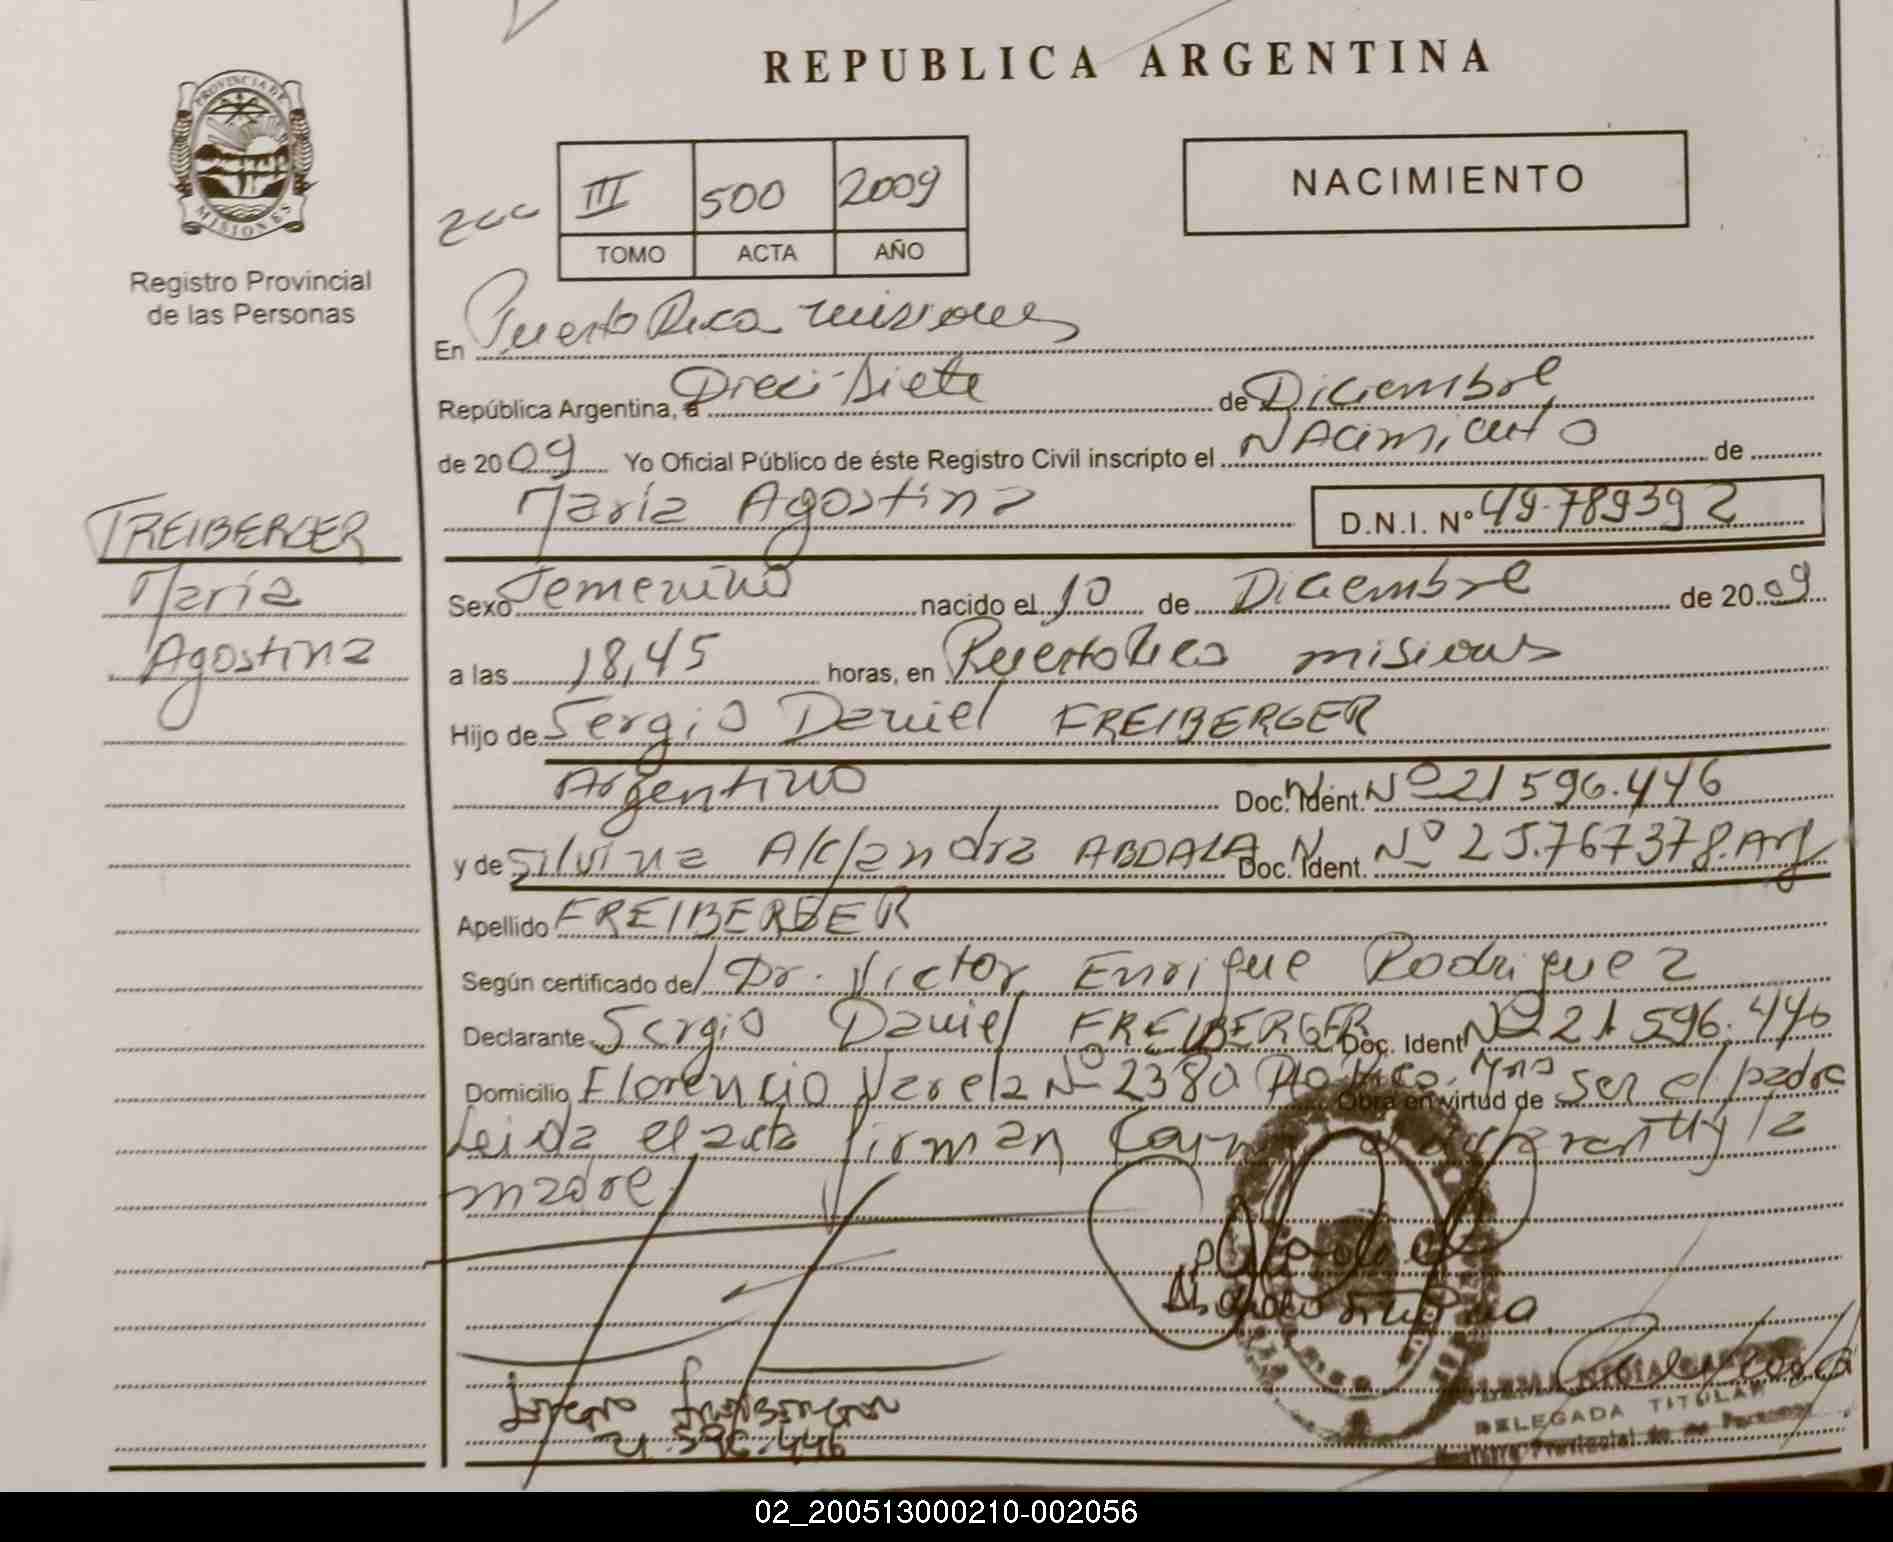 REPUBLICA ARGENTINA
PROVINCIA DE
MISIONES
Registro Provincial
de las Personas
III 500 2009
TOMO ACTA AÑO
NACIMIENTO
En Puerto Rico misiones
República Argentina, a Dieci-siete de Diciembre
de 2009 Yo Oficial Público de éste Registro Civil inscripto el NAcimiento de
María Agostina D.N.I. Nº 49.789392
FREIBERGER
María
Agostina
Sexo Femenino nacido el 10 de Diciembre de 2009
a las 18,45 horas, en Puerto Rico misiones
Hijo de Sergio Daniel FREIBERGER
Argentino Doc. N. Ident. Nº 21 596.446
y de Silvina Alejandra ABDALA Doc. N. Ident. Nº 25.767378. Arg
Apellido FREIBERGER
Según certificado del Dr. Victor Enrique Rodriguez
Declarante Sergio Daniel FREIBERGER Doc. Ident Nº 21 596.446
Domicilio Florencio Varela Nº 2380 Pto Rico. Mnes Obra en virtud de ser el padre
Leida el acta firman el declarante y la
madre.
Silvina
Freiberger
21.596.446
DELEGADA TITULAR
Registro Provincial de las Personas
02_200513000210-002056